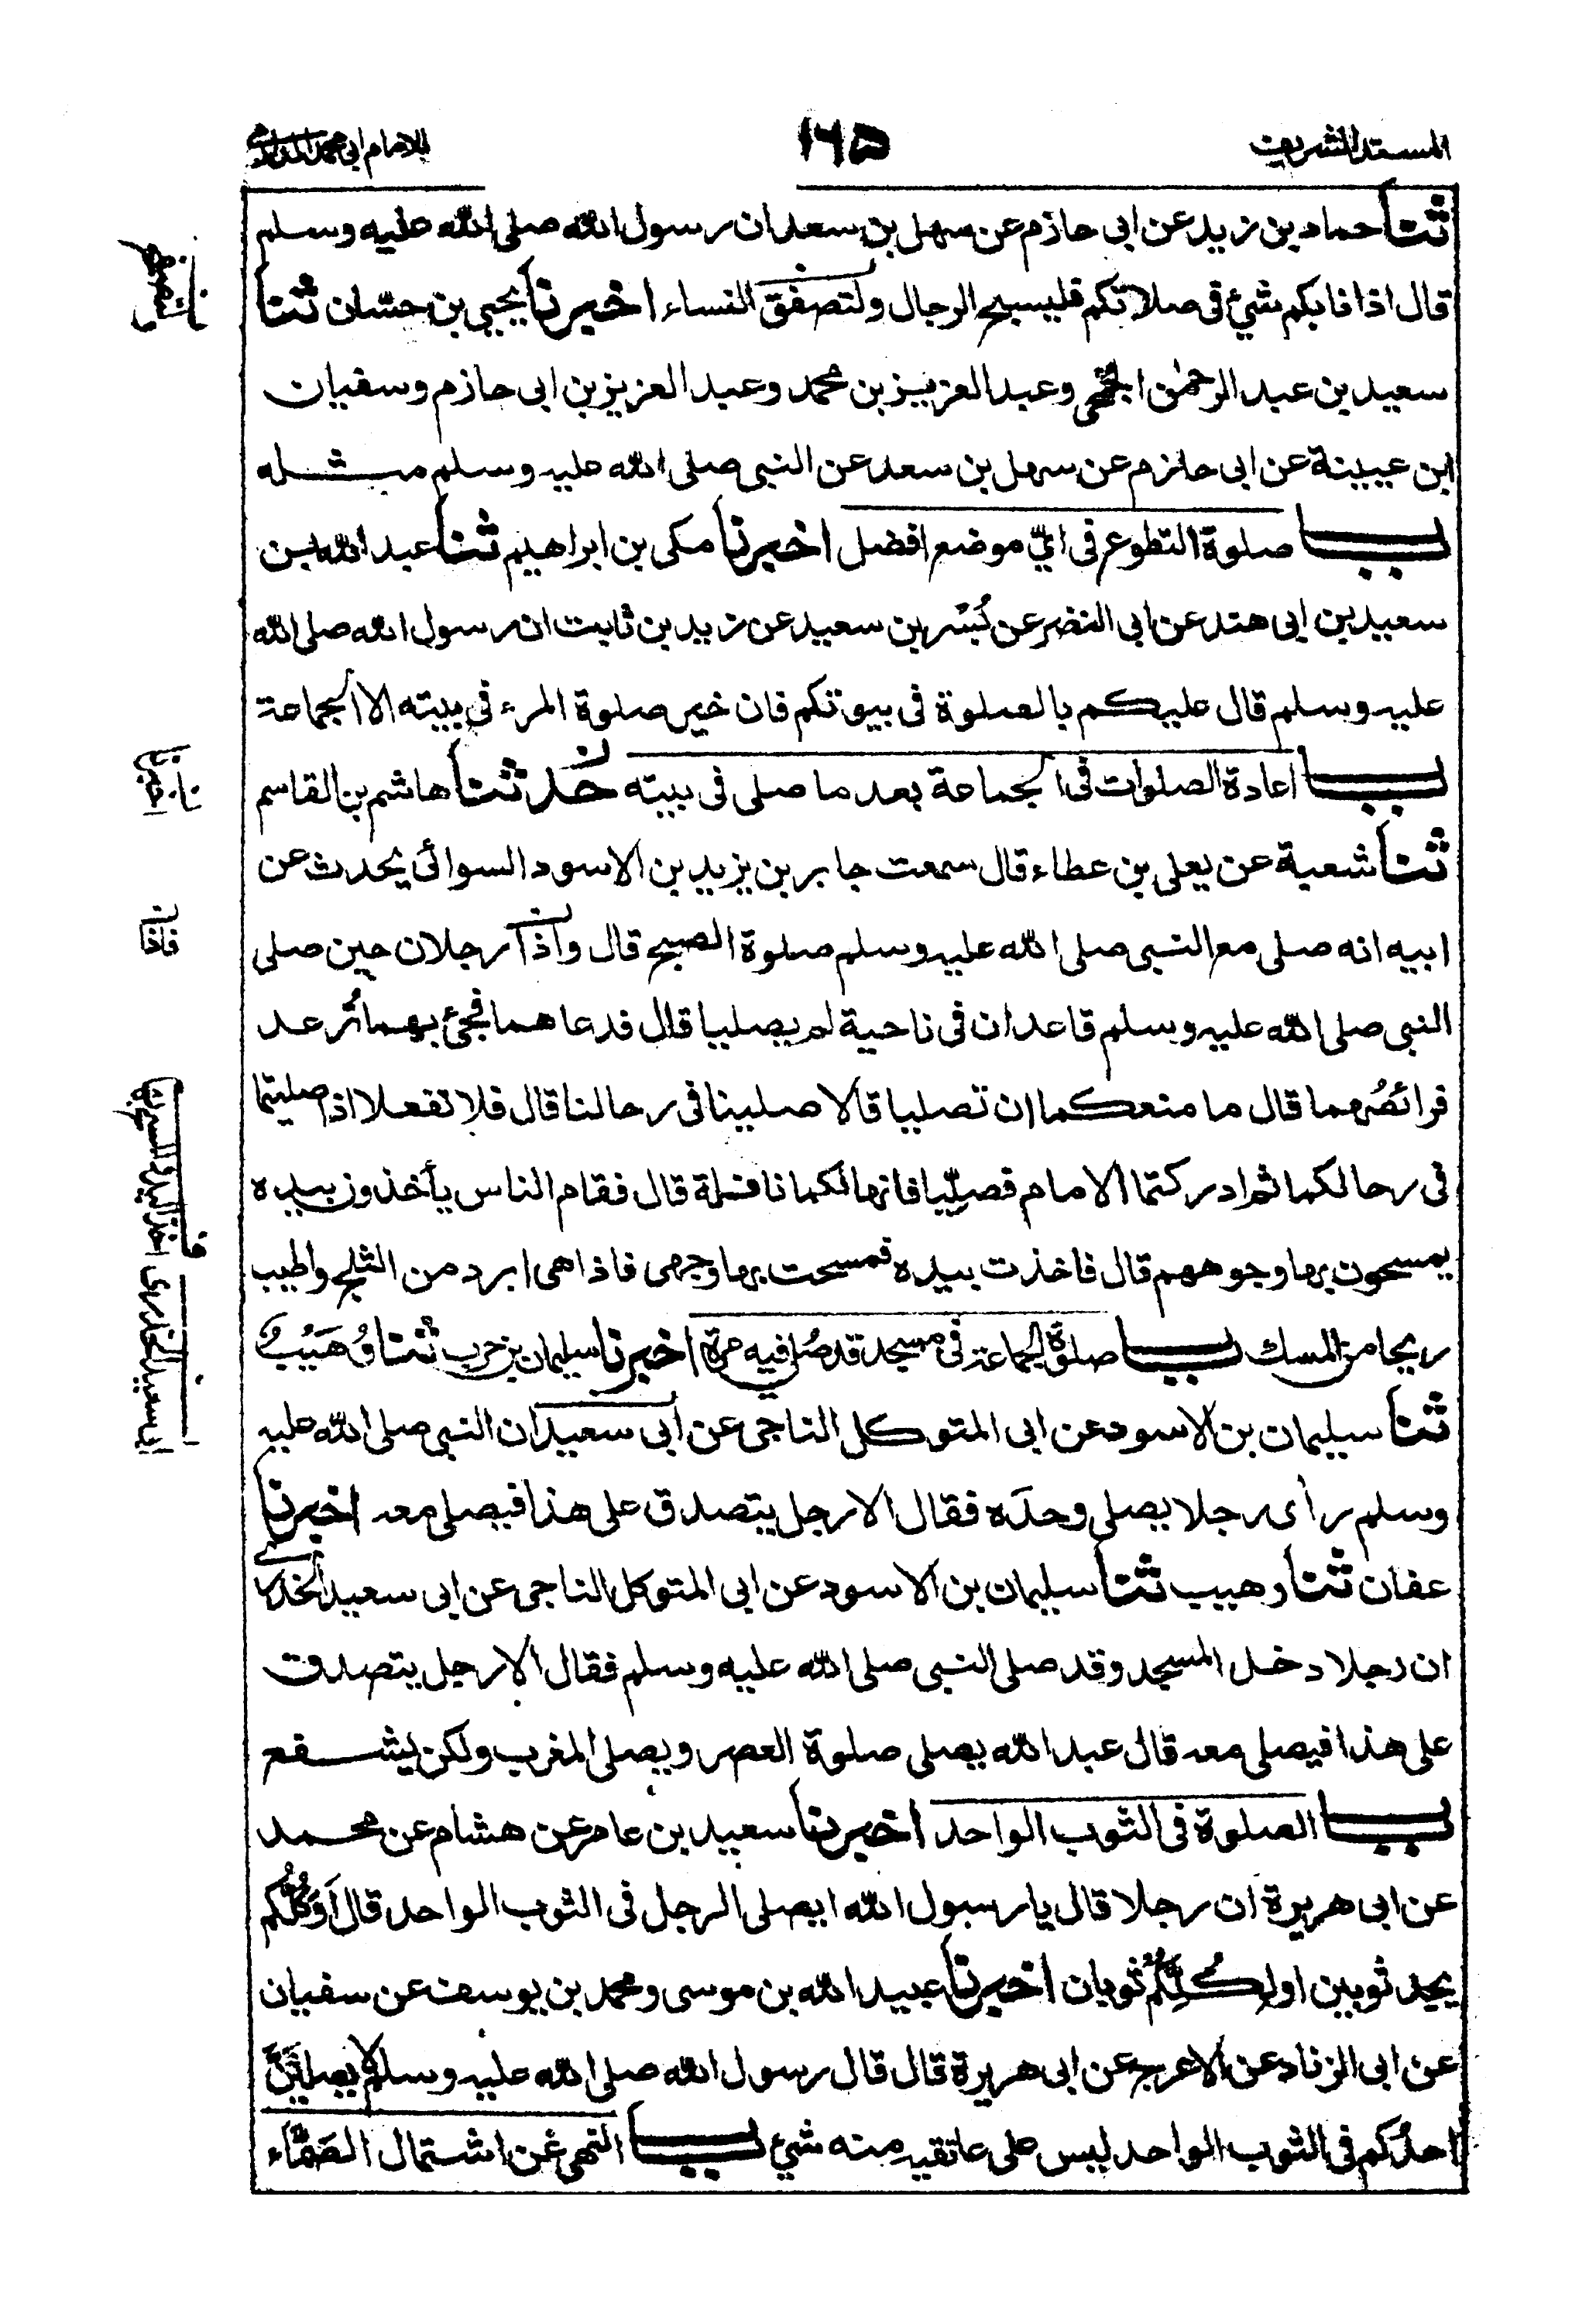 المسند الشريف ١٦٥ للامام ابى محمد الدارمى
ثنا حماد بن زيد عن ابى حازم عن سهل بن سعد ان رسول الله صلى الله عليه وسلم
قال اذا نابكم شئ فى صلاتكم فليسبح الرجال ولتصفق النساء اخبرنا يحيى بن حسّان ثنا
سعيد بن عبد الرحمٰن الجمحى وعبد العزيز بن محمد وعبد العزيز بن ابى حازم وسفيان
ابن عيينة عن ابى حازم عن سهل بن سعد عن النبى صلى الله عليه وسلم مثله
باب صلوة التطوع فى اىّ موضع افضل اخبرنا مكى بن ابراهيم ثنا عبد الله بن
سعيد بن ابى هند عن ابى النضر عن بُسْر بن سعيد عن زيد بن ثابت ان رسول الله صلى الله
عليه وسلم قال عليكم بالصلوة فى بيوتكم فان خير صلوة المرء فى بيته الا الجماعة
باب اعادة الصلوات فى الجماعة بعد ما صلى فى بيته حدثنا هاشم بن القاسم
ثنا شعبة عن يعلى بن عطاء قال سمعت جابر بن يزيد بن الاسود السوائى يحدث عن
ابيه انه صلى مع النبى صلى الله عليه وسلم صلوة الصبح قال واذا رجلان حين صلى
النبى صلى الله عليه وسلم قاعدان فى ناحية لم يصليا قال فدعاهما فجئ بهما تُرعد
فرائصُهما قال ما منعكما ان تصليا قالا صلينا فى رحالنا قال فلا تفعلا اذا صليتما
فى رحالكما ثم ادركتما الامام فصلِّيا فانها لكما نافلة قال فقام الناس يأخذون بيده
يمسحون بها وجوههم قال فاخذت بيده فمسحت بها وجهى فاذا هى ابرد من الثلج واطيب
ريحا من المسك باب صلوة الجماعة فى مسجد قد صُلى فيه مرة اخبرنا سليمان بن حرب ثنا وُهَيْبٌ
ثنا سليمان بن الاسود عن ابى المتوكل الناجى عن ابى سعيد ان النبى صلى الله عليه
وسلم رأى رجلا يصلى وحدَه فقال الا رجل يتصدق على هذا فيصلى معه اخبرنا
عفان ثنا وهيب ثنا سليمان بن الاسود عن ابى المتوكل الناجى عن ابى سعيد الخدرى
ان رجلا دخل المسجد وقد صلى النبى صلى الله عليه وسلم فقال الا رجل يتصدق
على هذا فيصلى معه قال عبد الله يصلى صلوة العصر ويصلى المغرب ولكن يشفع
باب الصلوة فى الثوب الواحد اخبرنا سعيد بن عامر عن هشام عن محمد
عن ابى هريرة ان رجلا قال يا رسول الله ايصلى الرجل فى الثوب الواحد قال اَوَكُلُّكم
يجد ثوبين اولِكُلِّكُمْ ثوبان اخبرنا عبيد الله بن موسى ومحمد بن يوسف عن سفيان
عن ابى الزناد عن الاعرج عن ابى هريرة قال قال رسول الله صلى الله عليه وسلم لا يصلينَّ
احدُكم فى الثوب الواحد ليس على عاتقيه منه شئ باب النهى عن اشتمال الصَمَّاء
ن
اخبرنا
ن
فاذا